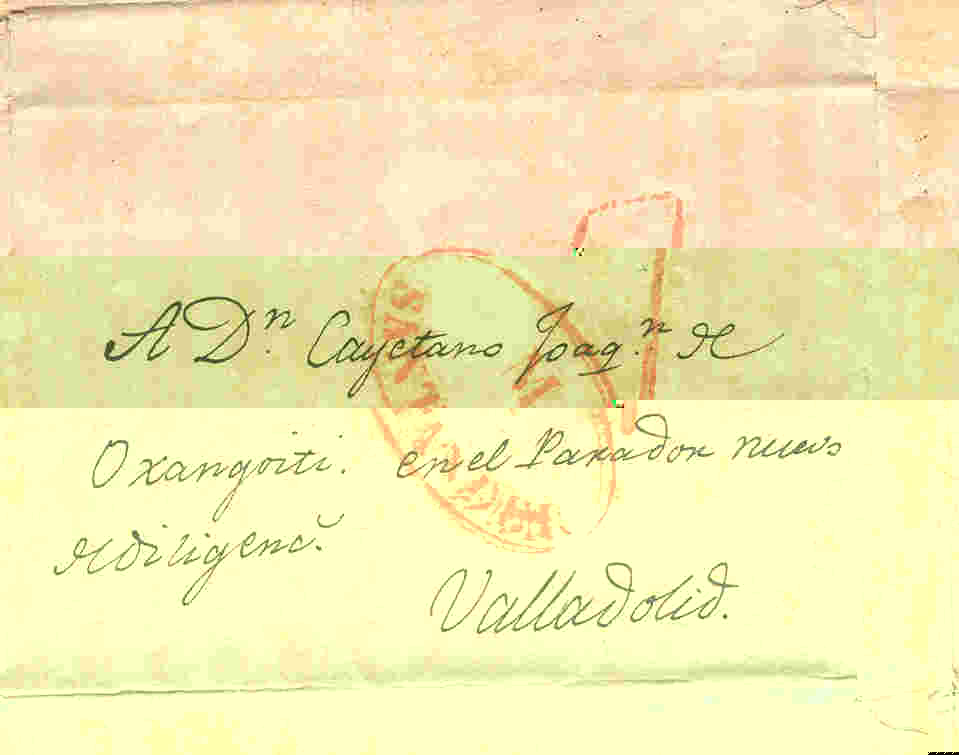 A Dn. Cayetano Joaqn. de
Oxangoiti. en el Parador nuevo
de diligenc.
Valladolid.
7
SANTANDER